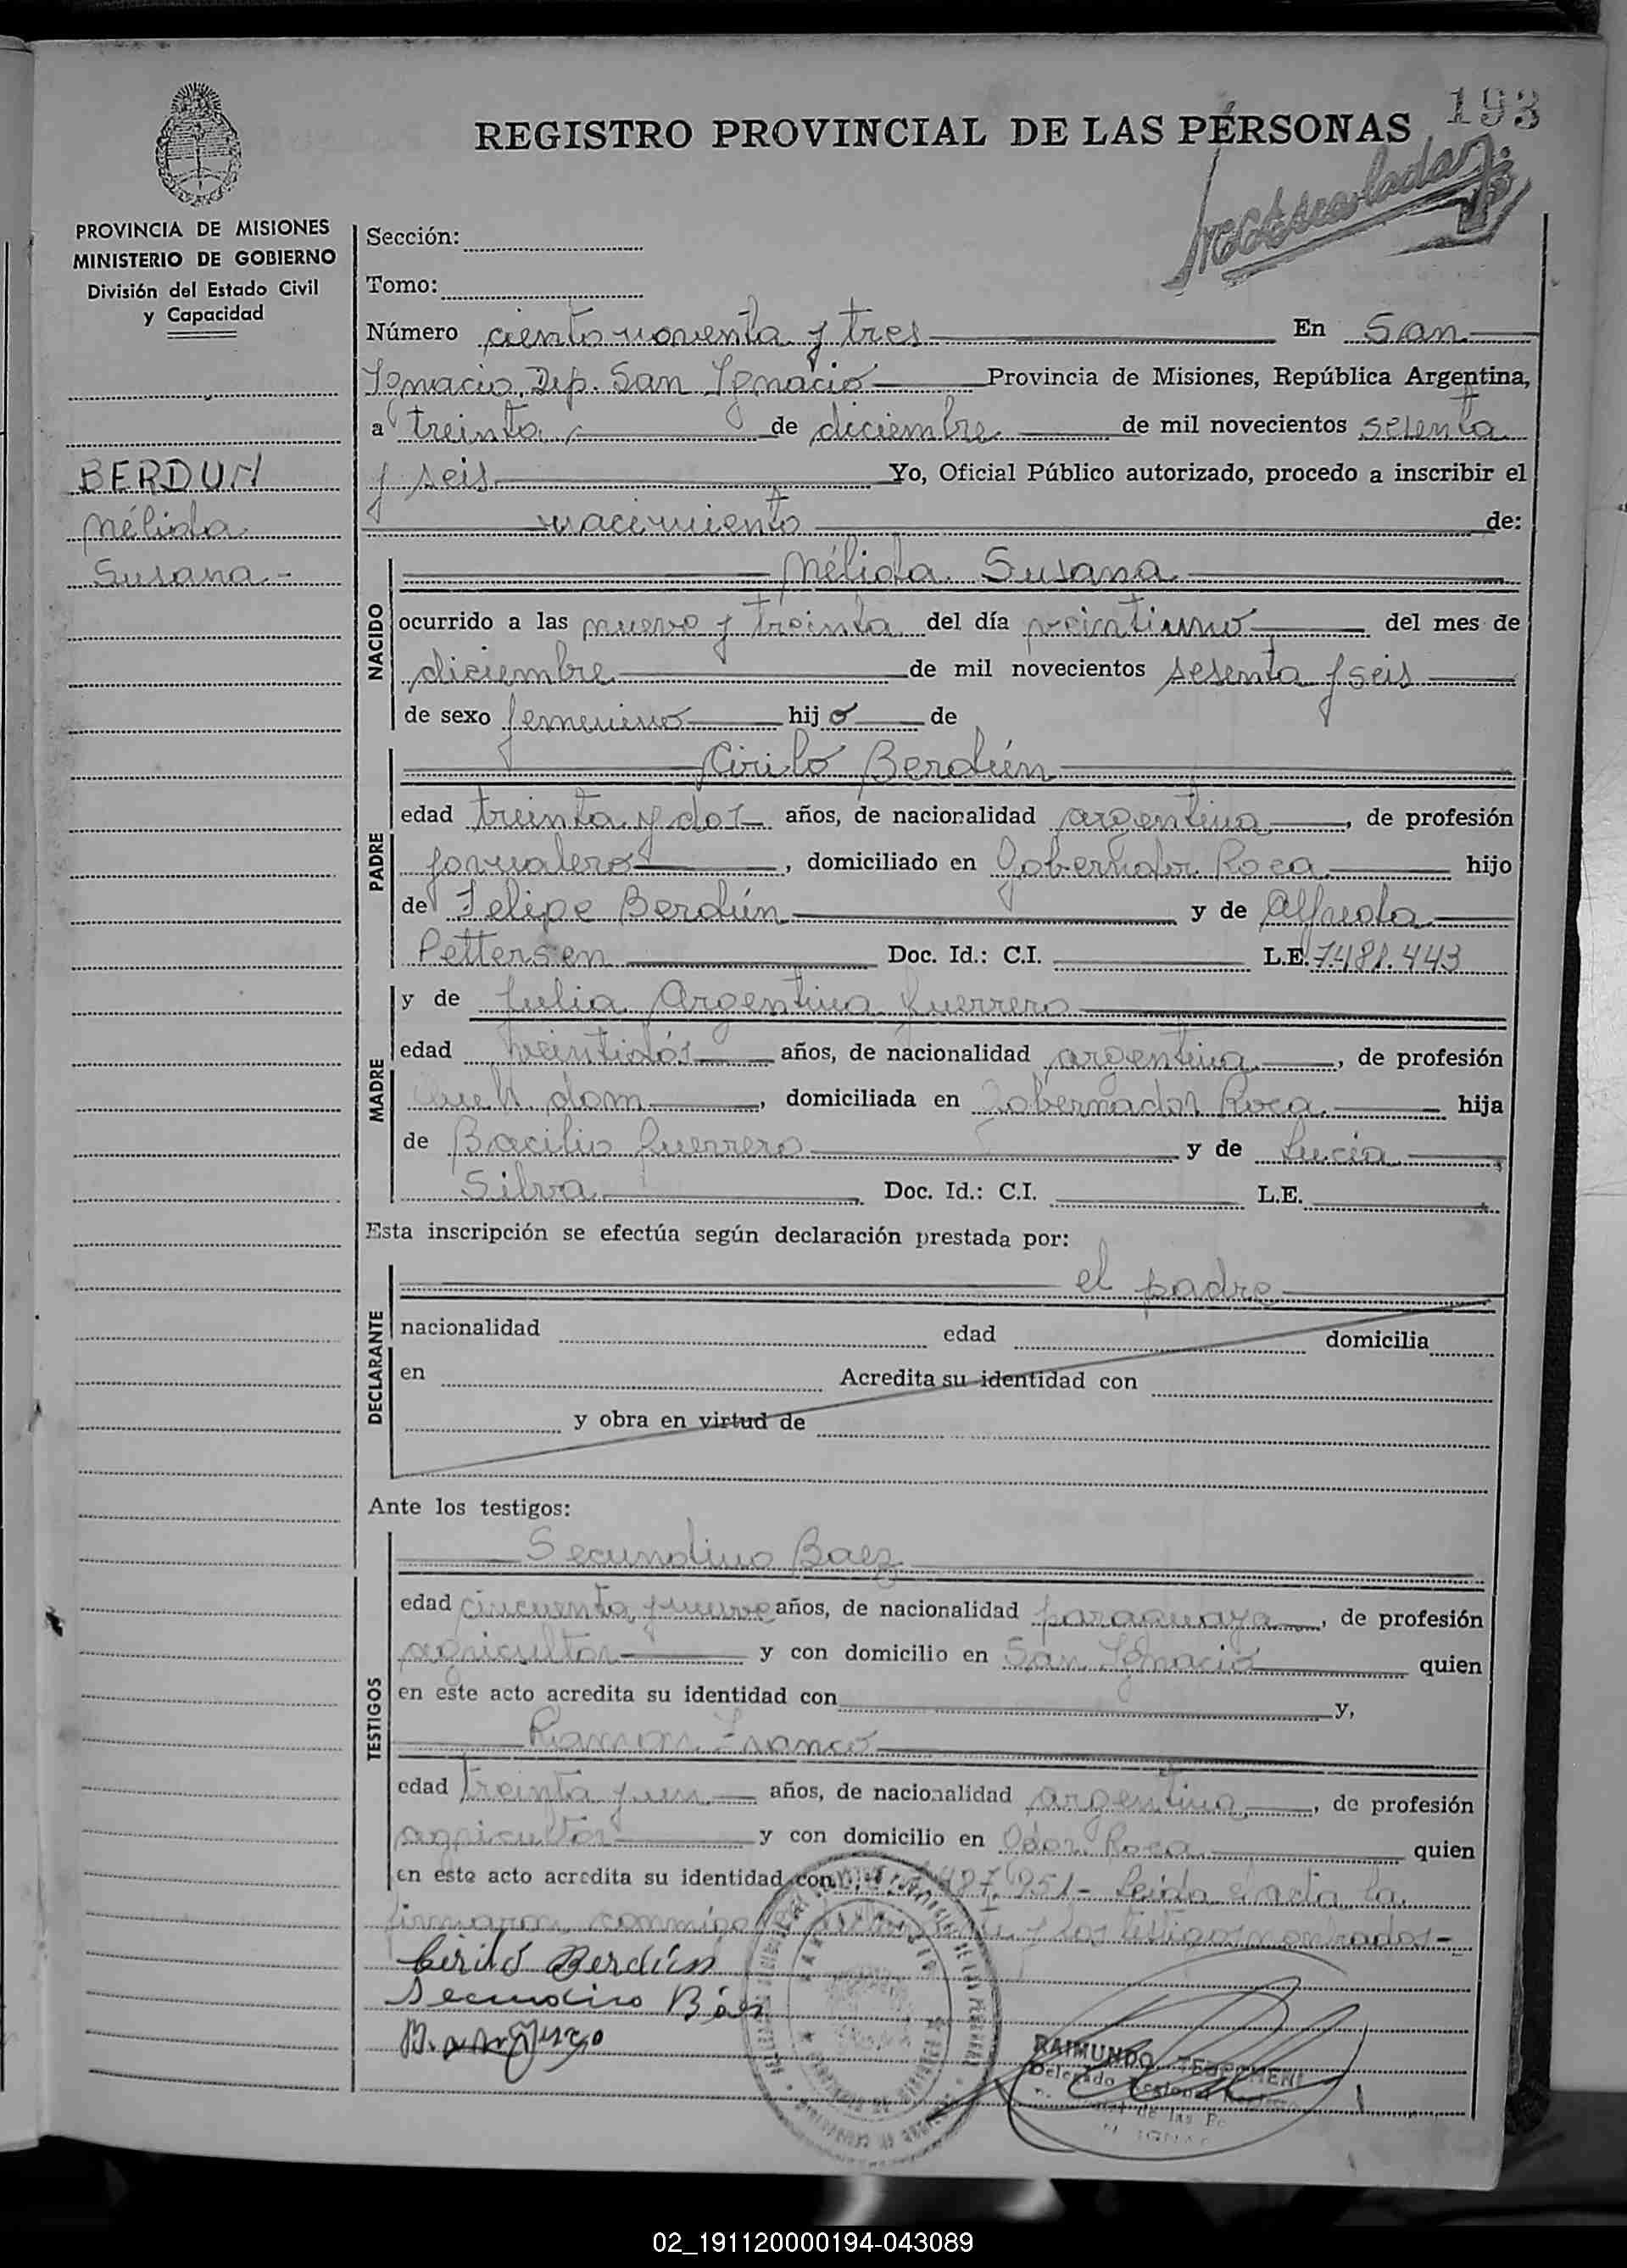 193
REGISTRO PROVINCIAL DE LAS PERSONAS
PROVINCIA DE MISIONES
MINISTERIO DE GOBIERNO
División del Estado Civil
y Capacidad
BERDUN
Nélida
Susana.-
Sección:
Tomo:
Número ciento noventa y tres En San
Ignacio, Dep. San Ignacio Provincia de Misiones, República Argentina,
a treinta de diciembre de mil novecientos sesenta
y seis Yo, Oficial Público autorizado, procedo a inscribir el
nacimiento de:
NACIDO
Nélida Susana
ocurrido a las nueve y treinta del día veintiuno del mes de
diciembre de mil novecientos sesenta y seis
de sexo femenino hijo de
PADRE
Cirilo Berdún
edad treinta y dos años, de nacionalidad argentina, de profesión
jornalero, domiciliado en Gobernador Roca hijo
de Felipe Berdún y de Alfreda
Pettersen Doc. Id.: C.I. L.E. 7.481.443
MADRE
y de Julia Argentina Guerrero
edad veintidós años, de nacionalidad argentina, de profesión
dom, domiciliada en Gobernador Roca hija
de Bacilio Guerrero y de Lucía
Silva Doc. Id.: C.I. L.E.
Esta inscripción se efectúa según declaración prestada por:
DECLARANTE
el padre
nacionalidad edad domicilia
en Acredita su identidad con
y obra en virtud de
Ante los testigos:
TESTIGOS
Secundino Baez
edad cincuenta y nueve años, de nacionalidad paraguaya, de profesión
agricultor y con domicilio en San Ignacio quien
en este acto acredita su identidad con y,
Ramon Franco
edad treinta y un años, de nacionalidad argentina, de profesión
agricultor y con domicilio en Gdor. Roca quien
en este acto acredita su identidad con Leida el acta la
firmaron conmigo y los testigos nombrados-
Cirilo Berdún
Secundino Báez
RAIMUNDO
Delegado Regional
de las
02_191120000194-043089